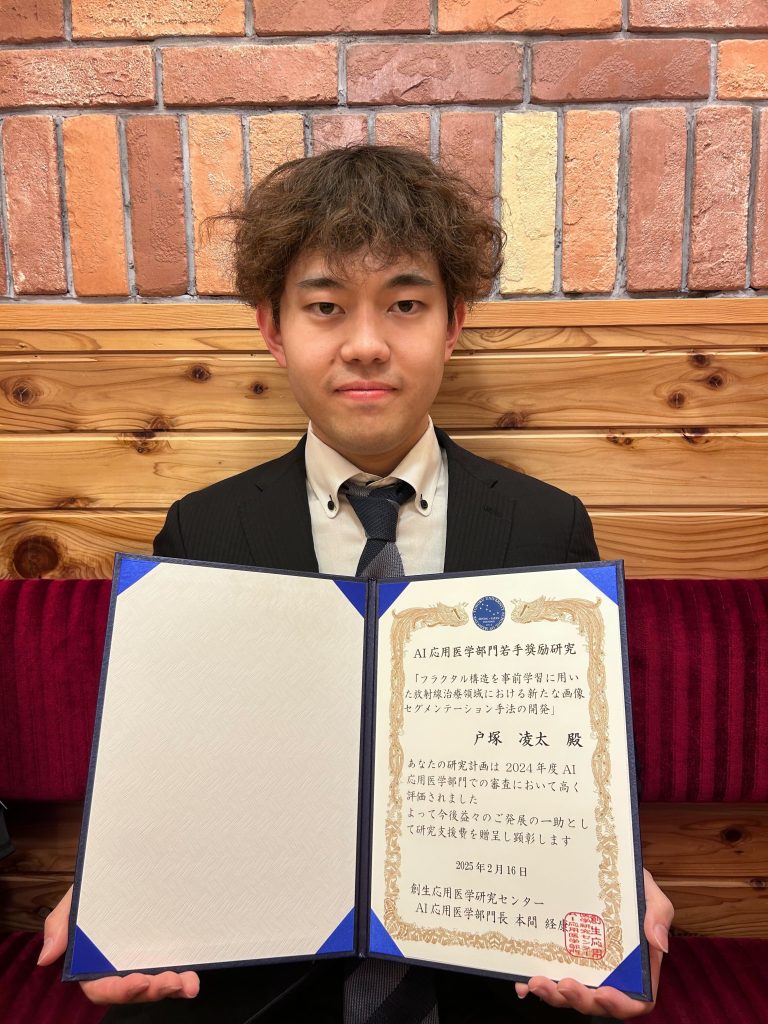 AI応用医学部門若手奨励研究
「フラクタル構造を事前学習に用い
た放射線治療領域における新たな画像
セグメンテーション手法の開発」
戸塚 凌太 殿
あなたの研究計画は 2024年度 AI
応用医学部門での審査において高く
評価されました
よって今後益々のご発展の一助とし
て研究支援費を贈呈し顕彰します
2025年2月16日
創生応用医学研究センター
AI応用医学部門長 本間 経康